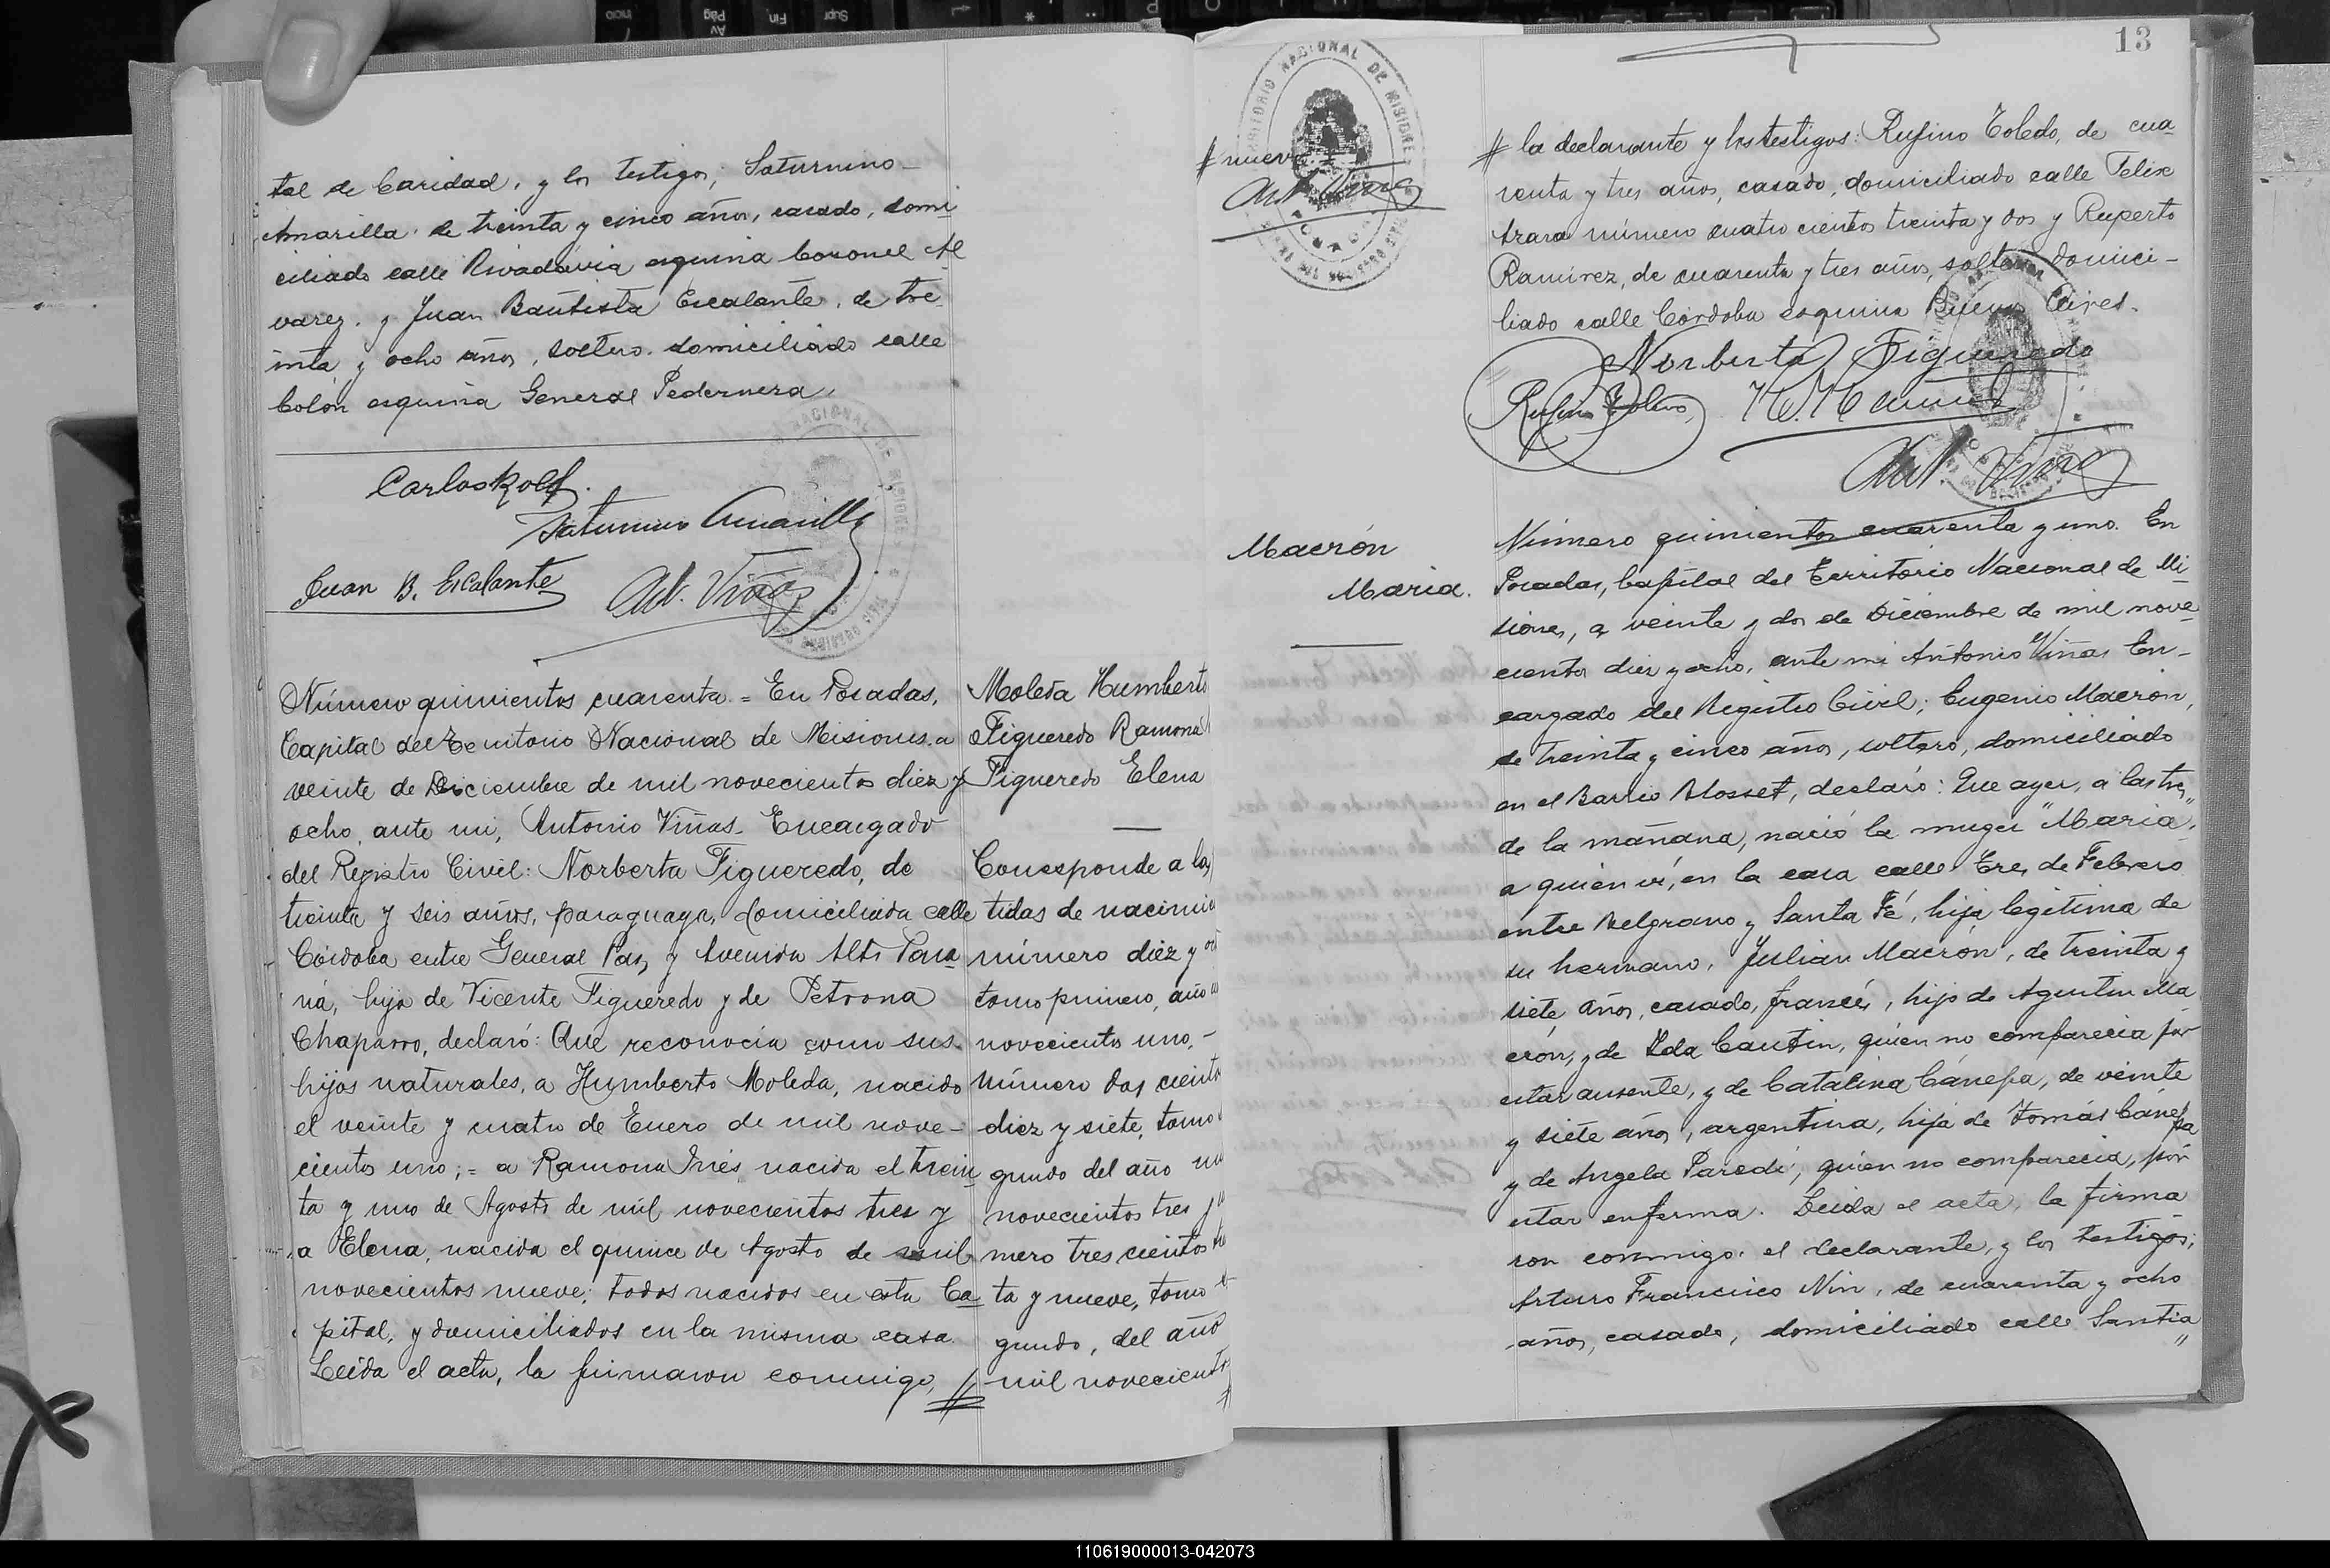 tal de Caridad, y los testigos; Saturnino
Amarilla, de treinta y cinco años, casado, domi
ciliado calle Rivadavia esquina Coronel Al
varez, y Juan Bautista Escalante, de tre
inta y ocho años, soltero, domiciliado calle
Colón esquina General Pedernera,
Carlos Rolf.
Saturnino Amarilla
Juan B. Escalante
Ant. Viñas
Número quinientos cuarenta = En Posadas,
Capital del Territorio Nacional de Misiones, a
veinte de Diciembre de mil novecientos diez y
ocho, ante mi, Antonio Viñas, Encargado
del Registro Civil: Norberta Figueredo, de
treinta y seis años, paraguaya, domiciliada calle
Córdoba entre General Paz y Avenida Alto Para
ná, hija de Vicente Figueredo y de Petrona
Chaparro, declaró: Que reconocía como sus
hijos naturales, a Humberto Moleda, nacido
el veinte y cuatro de Enero de mil nove-
cientos uno; = a Ramona Inés, nacida el trein
ta y uno de Agosto de mil novecientos tres y
a Elena, nacida el quince de Agosto de mil
novecientos nueve; todos nacidos en esta Ca
pital, y domiciliados en la misma casa.
Leída el acta, la firmaron conmigo, //
Moleda Humberto
Figueredo Ramona
Figueredo Elena
Corresponde a las
tidas de nacimie
número diez y
tomo primero, año
novecientos uno,-
número dos ciento
diez y siete, tomo
gundo del año
novecientos tres
mero tres cientos
ta y nueve, tomo
gundo, del año
mil novecient
13
TERRITORIO NACIONAL DE MISIONES
POSADAS
# nueve
Ant. Viñas
# la declarante y los testigos: Rufino Toledo, de cua
renta y tres años, casado, domiciliado calle Felix
Azara número cuatro cientos treinta y dos y Ruperto
Ramírez, de cuarenta y tres años, soltero, domici-
liado calle Córdoba esquina Buenos Aires.
Norberta Figueredo
Rufino Toledo
Ant. Viñas
Macrón
María.
Número quinientos cuarenta y uno. En
Posadas, Capital del Territorio Nacional de Mi
siones, a veinte y dos de Diciembre de mil nove
cientos diez y ocho, ante mi Antonio Viñas En-
cargado del Registro Civil; Eugenio Macrón,
de treinta y cinco años, soltero, domiciliado
en el Barrio Blosset, declaró: Que ayer, a las tres
de la mañana, nació la muger "María",
a quien ví, en la casa calle Tres de Febrero
entre Belgrano y Santa Fé, hija legítima de
su hermano, Julian Macrón, de treinta y
siete años, casado, francés, hijo de Agustin Ma
crón, y de Ida Cautin, quien no comparecia por
estar ausente, y de Catalina Cánepa, de veinte
y siete años, argentina, hija de Tomás Cánepa
y de Angela Parodi, quien no comparecia, por
estar enferma. Leida el acta, la firma
ron conmigo, el declarante, y los testigos;
Arturo Francisco Nin, de cuarenta y ocho
años, casado, domiciliado calle Santia
110619000013-042073